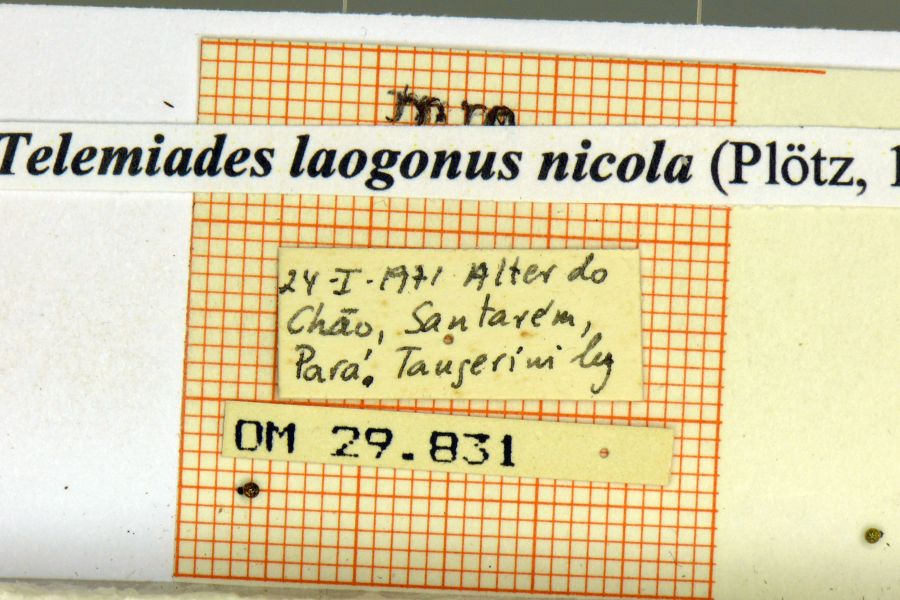 mm
Telemiades laogonus nicola (Plötz, 1
24-I-1971 Alter do
Chão, Santarém,
Pará. Tangerini leg
OM 29.831